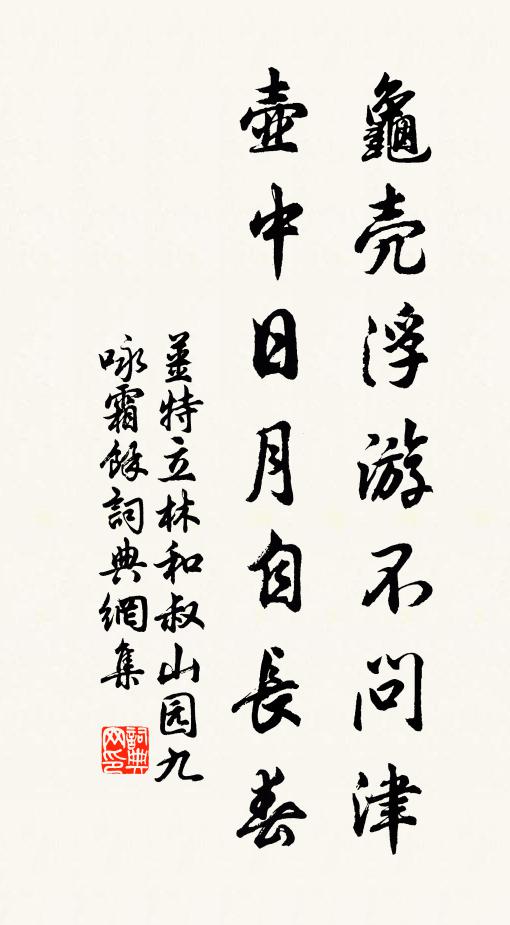 龜壳浮游不問津
壺中日月自長春
姜特立林和叔山园九
咏霜餘詞典網集
詞典網印